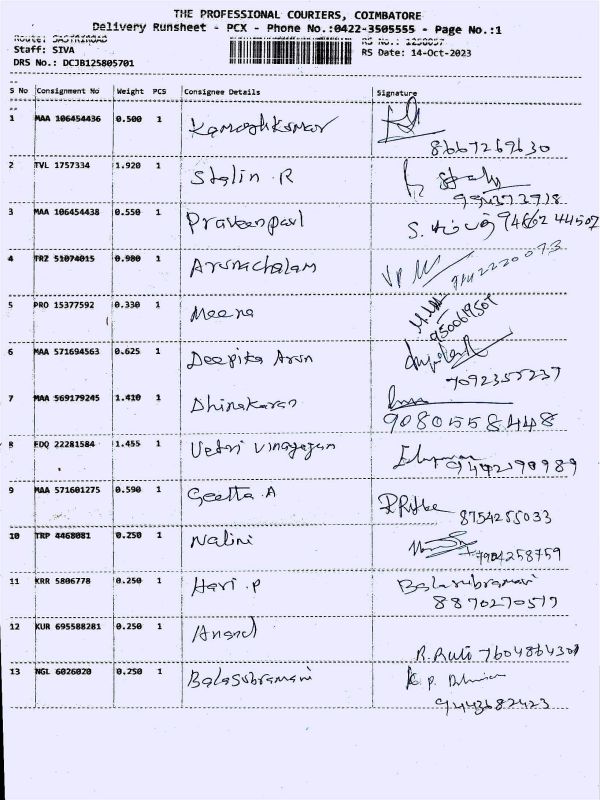 THE PROFESSIONAL COURIERS, COIMBATORE
Delivery Runsheet - PCX - Phone No.:0422-3505555 - Page No.:1
Route: SASTRIROAD RS No.: 1258057
Staff: SIVA RS Date: 14-Oct-2023
DRS No.: DCJB125805701
S No Consignment No Weight PCS Consignee Details Signature
1 MAA 106454436 0.500 1 Kamesh Kumar
8667269630
2 TVL 1757334 1.920 1 Stalin . R
3 MAA 106454438 0.550 1 Praveenpaul
4 TRZ 51074015 0.900 1 Arunachalam
5 PRO 15377592 0.330 1 Meena
950069507
6 MAA 571694563 0.625 1 Deepika Arun
7092355237
7 MAA 569179245 1.410 1 Dhinakaran
9080558448
8 EDQ 22281584 1.455 1 Vetri Vinayagan
9442190989
9 MAA 571601275 0.590 1 Geetta . A
8754255033
10 TRP 4468081 0.250 1 Nalini
7904258759
11 KRR 5806778 0.250 1 Hari . P Balasubramani
8870270517
12 KUR 695588281 0.250 1 Anand
7604864301
13 NGL 6026020 0.250 1 Balasubramani
9443682423